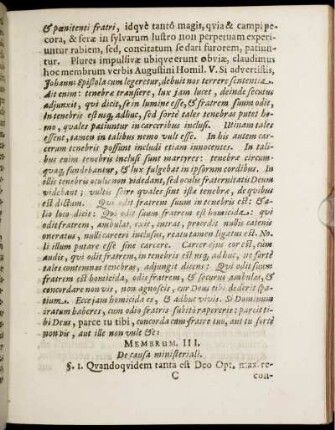 & pœnitenti fratri, idqvè tantò magis, qvia & campi pe-
cora, & feræ in sylvarum lustro non perpetuam experi-
untur rabiem, sed, concitatum sedari furorem, patiun-
tur. Plures impulsivæ ubiqve erunt obviæ, claudimus
hoc membrum verbis Augustini Homil. V. Si advertistis,
Johann: Epistola cum legeretur, debuit nos terrere sententia
Ait enim: tenebræ transiere, lux jam lucet, deinde secutus
adjunxit, qui dicit, se in lumine esse, & fratrem suum odit,
In tenebris est usq; adhuc, sed fortè tales tenebras putet ho-
mo, quales patiuntur in carceribus inclusi. Utinam tales
essent, tamen in talibus nemo vult esse. In his autem car-
cerum tenebris possunt includi etiam innocentes. In tali-
bus enim tenebris inclusi sunt martyres: tenebræ circum-
quaq; fundebantur, & lux fulgebat in ipsorum cordibus. In
illis tenebris oculis non videbant, sed oculis fraternitatis Deum
videbant, vultis scire quales sint istæ tenebræ, de qvibus
est dictum. Qui odit fratrem suum in tenebris est: & a-
lio loco dicit: Qui odit suum fratrem est homicida: qui
odit fratrem, ambulat, exit, intrat, procedit nullis catenis
oneratus, nulli carceri inclusus, reatu tamen ligatus est. No-
li illum putare esse sine carcere. Carcer ejus cor est, cùm
audis, qui odit fratrem, in tenebris est usq; adhuc, ne fortè
tales contemnas tenebras, adjungit dicens: Qui odit suum
fratrem est homicida, odis fratrem, & securus ambulas, &
concordare non vis, non agnoscis, cur Deus tibi dederit spa-
tium. Ecce jam homicida es, & adhuc vivis. Si Dominum
iratum haberes, cum odio fratris subitò rapereris: parcit ti-
bi Deus, parce tu tibi, concorda cum fratre tuo, aut tu fortè
non vis, aut ille non vult &c:
MEMBRUM. III.
De causa ministeriali.
§. 1. Qvandoqvidem tanta est Deo Opt. max. re-
C con-